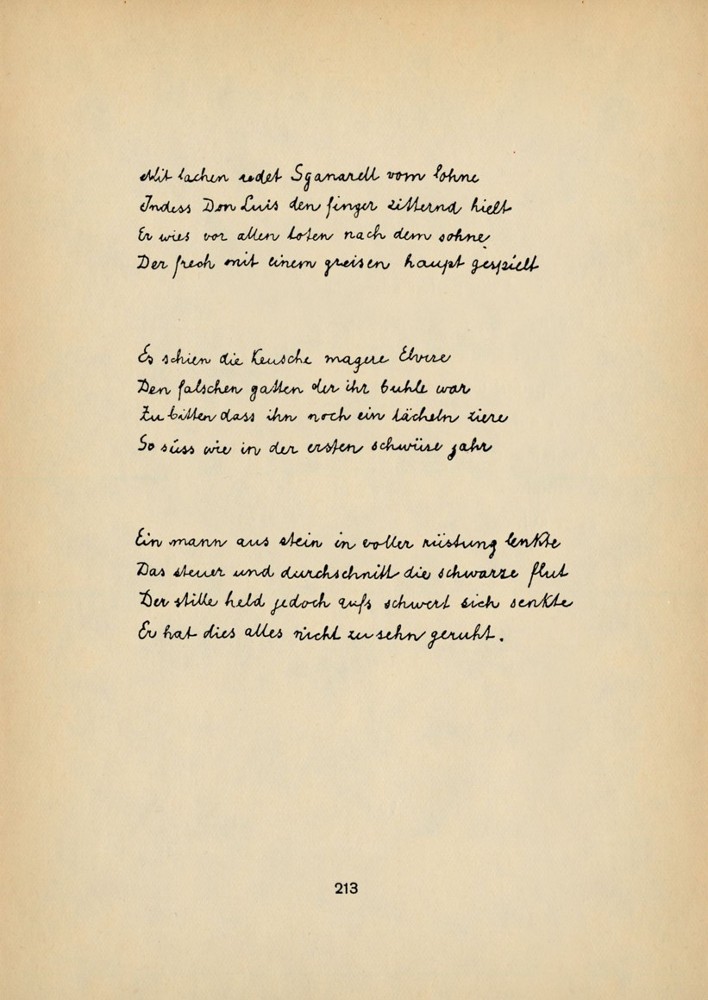 Mit lachen redet Sganarell vom lohne
Indess Don Luis den finger zitternd hielt
Er wies vor allen toten nach dem sohne
Der frech mit einem greisen haupt gespielt
Es schien die keusche magere Elvire
Den falschen gatten der ihr buhle war
Zu bitten dass ihn noch ein lächeln ziere
So süss wie in der ersten schwüre jahr
Ein mann aus stein in voller rüstung lenkte
Das steuer und durchschnitt die schwarze flut
Der stille held jedoch aufs schwert sich senkte
Er hat dies alles nicht zu sehn geruht.
213